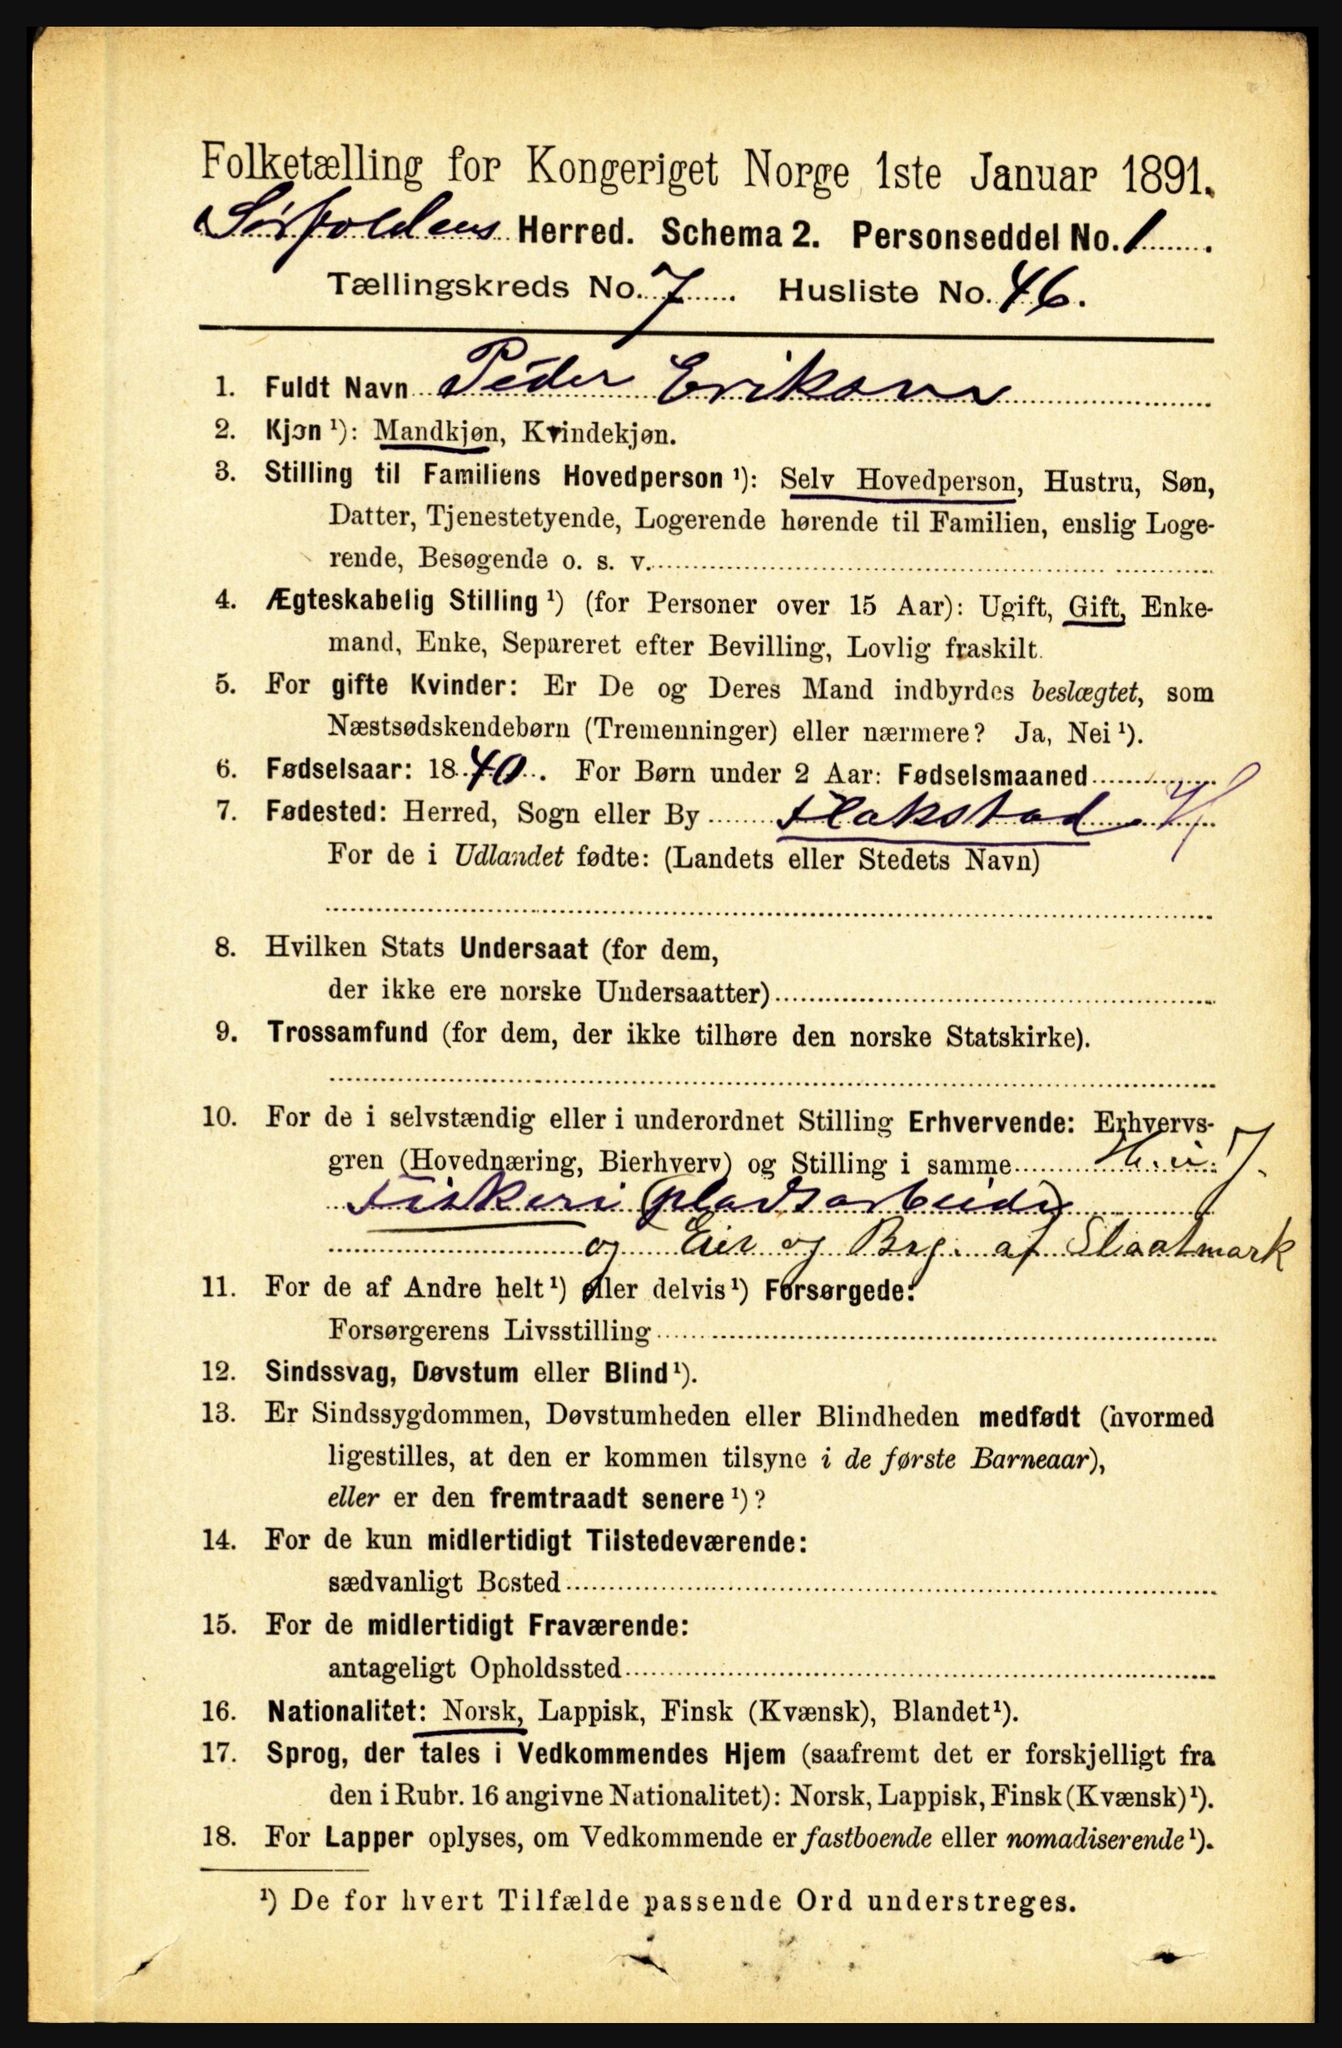 Folketælling for Kongeriget Norge 1ste Januar 1891.
Sørfoldens Herred. Schema 2. Personseddel No. 1
Tællingskreds No. 7. Husliste No. 46.
1. Fuldt Navn Peder Eriksen
2. Kjøn ¹): Mandkjøn, Kvindekjøn.
3. Stilling til Familiens Hovedperson ¹): Selv Hovedperson, Hustru, Søn,
Datter, Tjenestetyende, Logerende hørende til Familien, enslig Loge-
rende, Besøgende o. s. v.
4. Ægteskabelig Stilling ¹) (for Personer over 15 Aar): Ugift, Gift, Enke-
mand, Enke, Separeret efter Bevilling, Lovlig fraskilt.
5. For gifte Kvinder: Er De og Deres Mand indbyrdes beslægtet, som
Næstsødskendebørn (Tremenninger) eller nærmere? Ja, Nei ¹).
6. Fødselsaar: 1840. For Børn under 2 Aar: Fødselsmaaned
7. Fødested: Herred, Sogn eller By Flakstad
For de i Udlandet fødte: (Landets eller Stedets Navn)
8. Hvilken Stats Undersaat (for dem,
der ikke ere norske Undersaatter)
9. Trossamfund (for dem, der ikke tilhøre den norske Statskirke).
10. For de i selvstændig eller i underordnet Stilling Erhvervende: Erhvervs-
gren (Hovednæring, Bierhverv) og Stilling i samme
Fiskeri (pladsarbeide)
og Eier og Brg. af Slaatmark
11. For de af Andre helt ¹) eller delvis ¹) Forsørgede:
Forsørgerens Livsstilling
12. Sindssvag, Døvstum eller Blind ¹).
13. Er Sindssygdommen, Døvstumheden eller Blindheden medfødt (hvormed
ligestilles, at den er kommen tilsyne i de første Barneaar),
eller er den fremtraadt senere ¹)?
14. For de kun midlertidigt Tilstedeværende:
sædvanligt Bosted
15. For de midlertidigt Fraværende:
antageligt Opholdssted
16. Nationalitet: Norsk, Lappisk, Finsk (Kvænsk), Blandet ¹).
17. Sprog, der tales i Vedkommendes Hjem (saafremt det er forskjelligt fra
den i Rubr. 16 angivne Nationalitet): Norsk, Lappisk, Finsk (Kvænsk) ¹).
18. For Lapper oplyses, om Vedkommende er fastboende eller nomadiserende ¹).
¹) De for hvert Tilfælde passende Ord understreges.